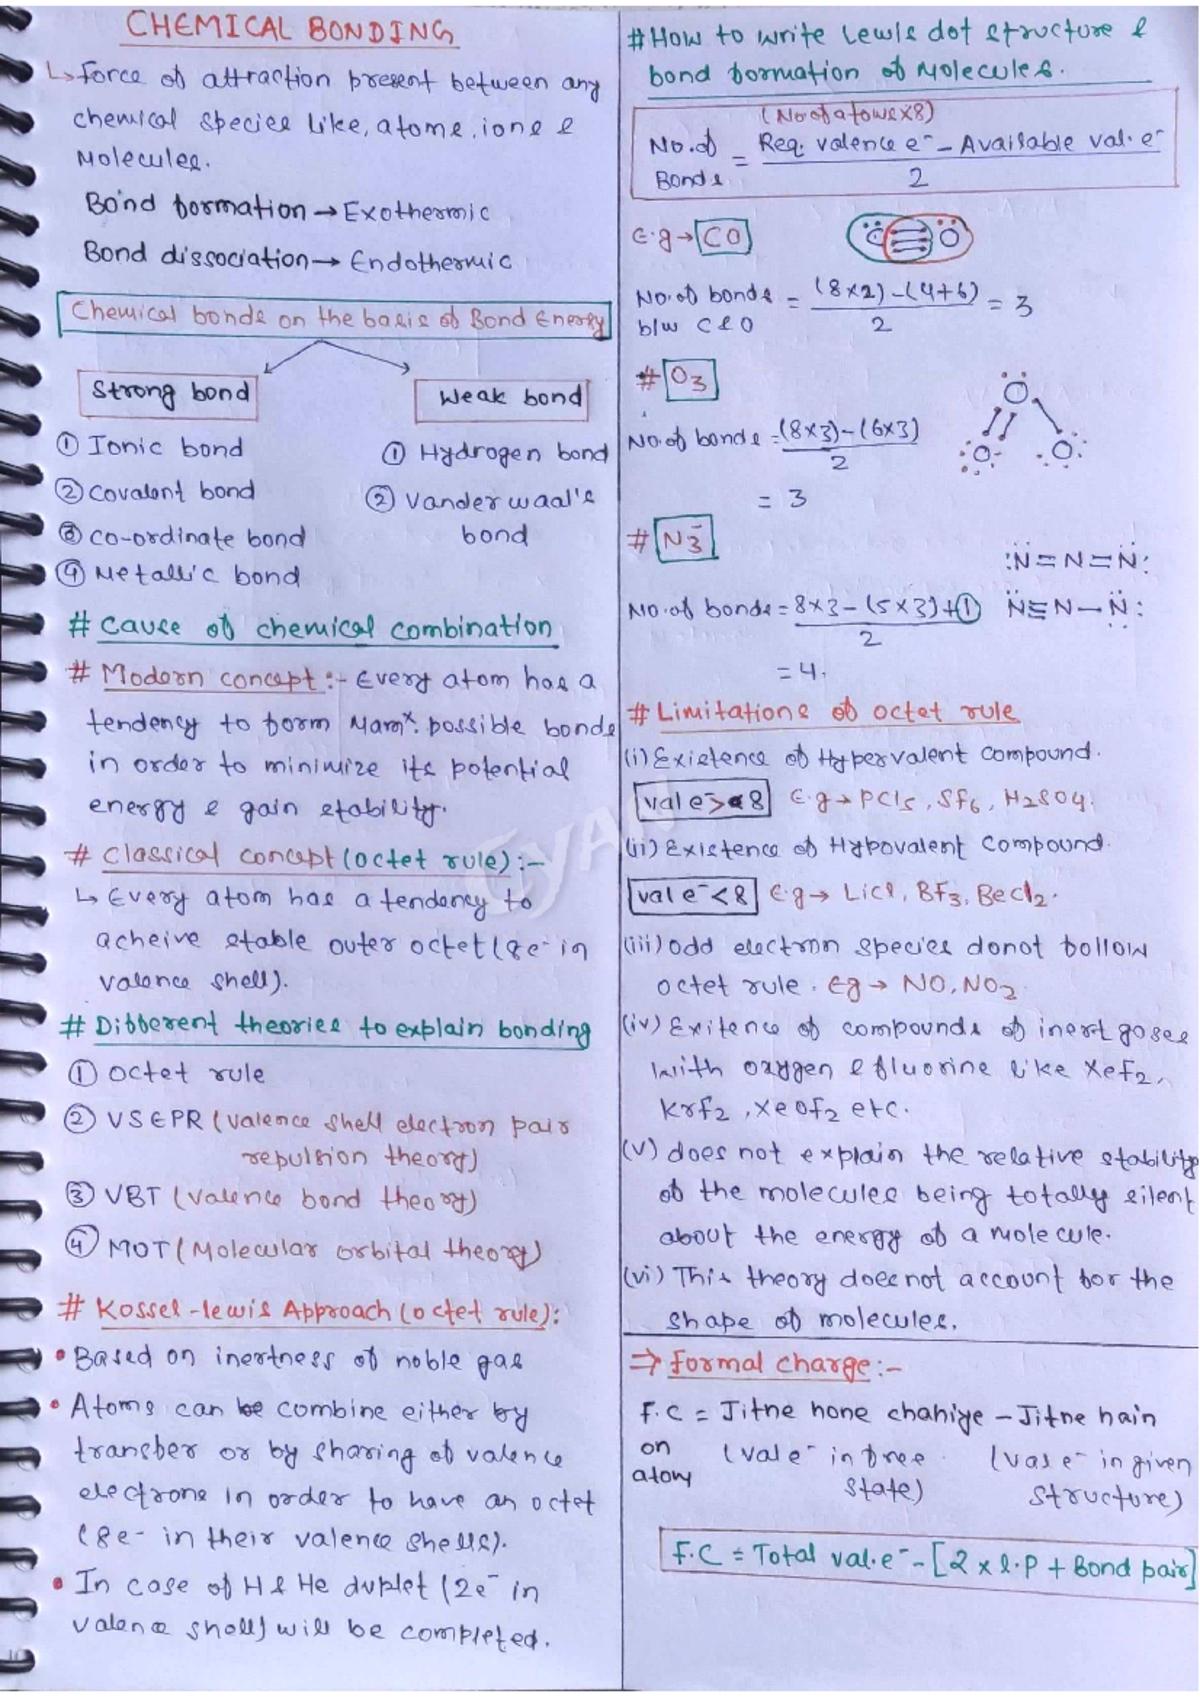 CHEMICAL BONDING
↳ Force of attraction present between any
chemical species like, atoms, ions &
Molecules.
Bond formation → Exothermic
Bond dissociation → Endothermic
Chemical bonds on the basis of Bond Energy
Strong bond
① Ionic bond
② Covalent bond
③ Co-ordinate bond
④ Metallic bond
Weak bond
① Hydrogen bond
② Vander waal's
bond
# Cause of chemical combination
# Modern concept :- Every atom has a
tendency to form Maxm. possible bonds
in order to minimize its potential
energy & gain stability.
# Classical concept (octet rule) :-
↳ Every atom has a tendency to
acheive stable outer octet (8e⁻ in
valence shell).
# Different theories to explain bonding
① Octet rule
② VSEPR (valence shell electron pair
repulsion theory)
③ VBT (Valence bond theory)
④ MOT (Molecular orbital theory)
# Kossel-lewis Approach (octet rule):
• Based on inertness of noble gas
• Atoms can be combine either by
transfer or by sharing of valence
electrons in order to have an octet
(8e⁻ in their valence shells).
• In case of H & He duplet (2e⁻ in
valence shell) will be completed.
# How to write Lewis dot structure &
bond formation of Molecules.
(No of atoms x 8)
No. of Bonds = Req. valence e⁻ - Available val. e⁻
2
E.g → CO
C O
No. of bonds = (8x2) - (4+6) = 3
b/w C & O 2
# O₃
O
O O
No. of bonds = (8x3) - (6x3)
2
= 3
# N₃⁻
:N=N=N:
No. of bonds = 8x3 - (5x3)+① N≡N-N:
2
= 4.
# Limitations of octet rule
(i) Existence of Hypervalent compound.
val e⁻ > 8 E.g → PCl₅, SF₆, H₂SO₄.
(ii) Existence of Hypovalent compound.
val e⁻ < 8 E.g → LiCl, BF₃, BeCl₂.
(iii) odd electron species donot follow
octet rule. Eg → NO, NO₂
(iv) Exitence of compounds of inert gases
with oxygen & fluorine like XeF₂,
KrF₂, XeOF₂ etc.
(v) does not explain the relative stability
of the molecules being totally silent
about the energy of a molecule.
(vi) This theory does not account for the
shape of molecules.
⇒ Formal charge :-
F.C = Jitne hone chahiye - Jitne hain
on atom (val e⁻ in free (val e⁻ in given
state) structure)
F.C = Total val. e⁻ - [2 x l.p + Bond pair]